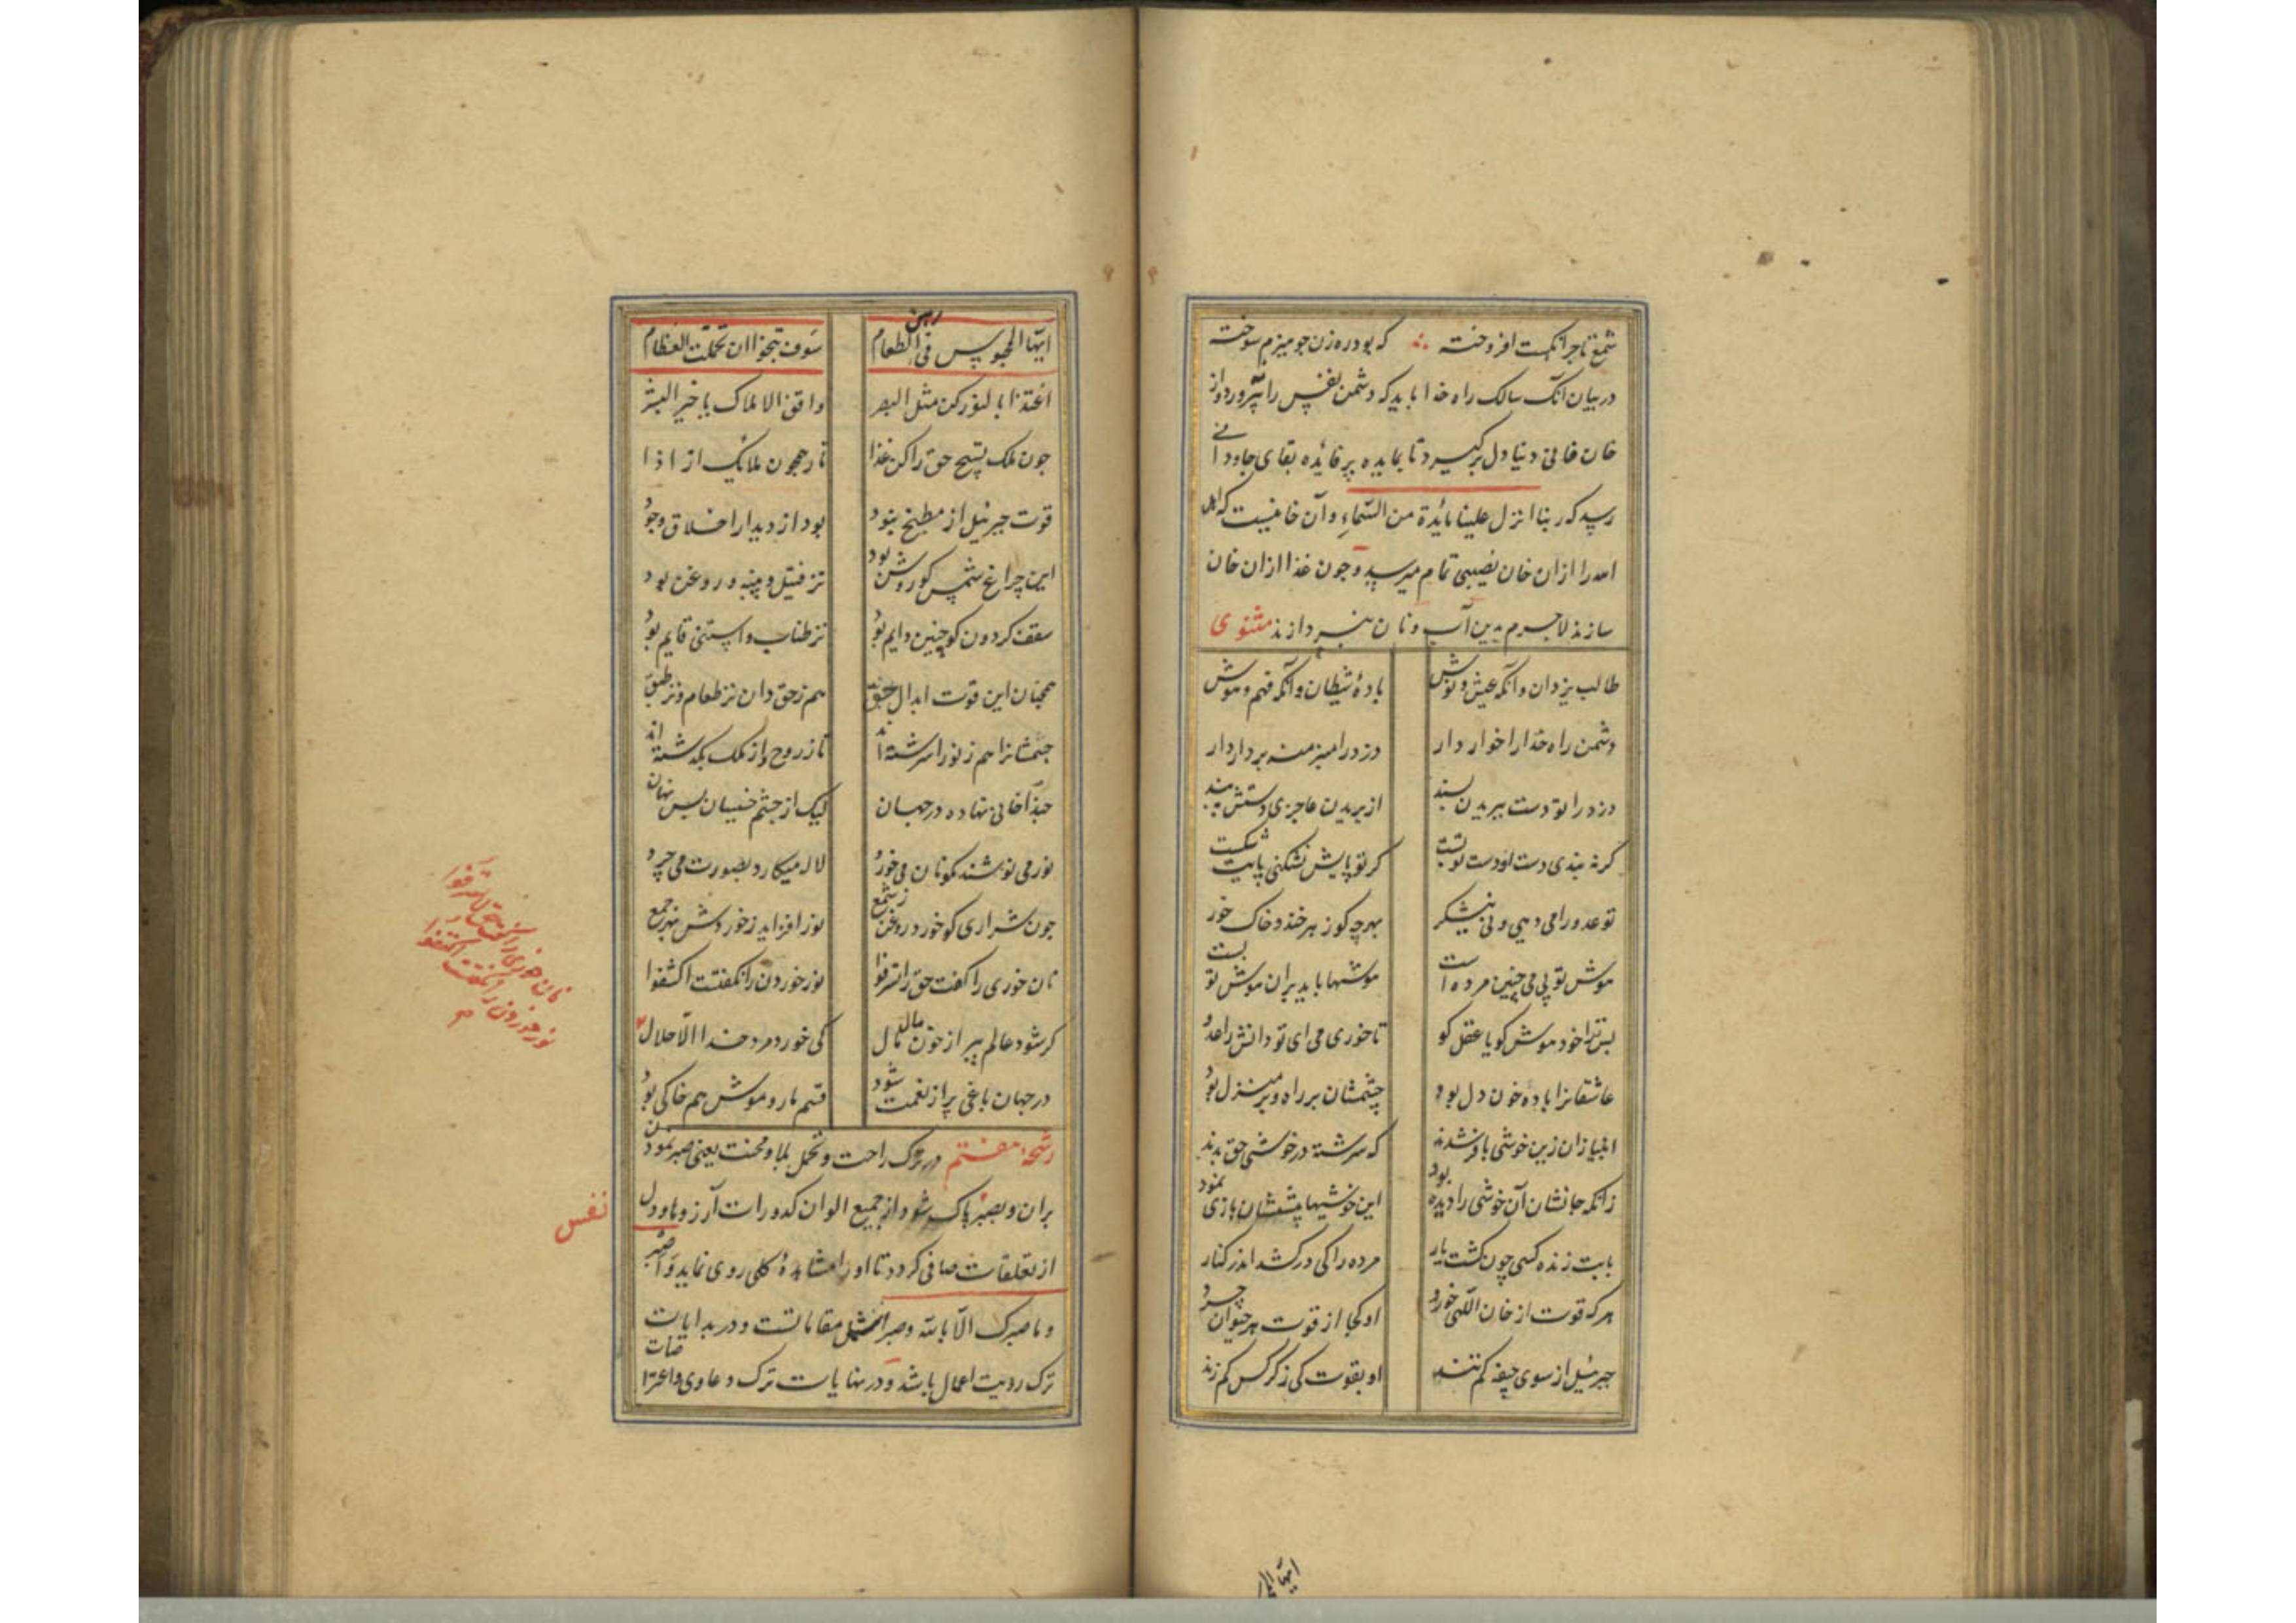 شمع تاجر آنگست افروخته ∴ که بود ره زن جو میزم سوخته
در بیان آنک سالک راه خدا باید که دشمن نفس را نپرورد و از
خان فانی دنیا دل برگیرد تا بمایده پر فائده بقای جاودانی
رسد که ربنا انزل علینا مائدة من السماء و آن خا غیبیست که اهل
الله را از ان خان نصیبی تمام میرسد و جون غذا از ان خان
سازند لاجرم بدین آب و نان نپردازند مثنوی
طالب یزدان و آنکه عیش و نوش
بادهٔ شیطان و آنکه فهم و هوش
دشمن راه خدا را خوار دار
دزد را منبر منه بر دار دار
دزد را تو دست ببریدن پسند
از بریدن عاجزی دستش ببند
کر نه بندی دست او دست تو بست
کر تو پایش نشکنی پایت شکست
تو عدو را می دهی و نی شکر
بهر چه کو زهر خند و خاک خور
هوش تو بی می چنین مرده است
هوشها باید بران هوش تو بست
بس ترا خود هوش کو یا عقل کو
تا خوری می ای تو دانش را عدو
عاشقانرا بادهٔ خون دل بود
چشمشان بر راه و بر منزل بود
انبیا زان زین خوشی بافر شدند
که سرشته در خوشی حق بدند
زانکه جانشان آن خوشی را دیده بود
این خوشیها پیششان بازی نمود
با بت زنده کسی چون کشت یار
مرده را کی در کشد اندر کنار
هر که قوت از خان الهی خورد
او کجا از قوت هر حیوان چرد
جبرئیل از سوی جیفه کم تند
او بقوت کی ز کرکس کم زند
ایها الم
ایها المحبوس فی رهن الطعام
سوف تنجو ان تحملت العظام
اغتذا بالنور کن مثل البصر
وافق الاملاک یا خیر البشر
جون ملک تسبیح حق را کن غذا
تا رهی همجون ملائک از اذا
قوت جبرئیل از مطبخ نبود
بود از دیدار اخلاق وجود
این چراغ شمس کو روشن بود
نز فتیل و پنبه و روغن بود
سقف کردون کو چنین دایم بود
نز طناب و استنی قایم بود
همچنان این قوت ابدال حق
هم ز حق دان نز طعام و نز طبق
جسمشانرا هم ز نور اسرشته اند
تا ز روح و از ملک بگذشته اند
حبذا خانی نهاده در جهان
لیک از چشم خسیسان بس نهان
نور می نوشند کو نان می خورد
لاله میکارد بصورت می چرد
جون شراری کو خورد روغن ز شمع
نور افزاید ز خوردش بهر جمع
نان خوری را کفت حق لا تسرفوا
نور خوردن را نکفتست اکتفوا
کر شود عالم پر از خون مال مال
کی خورد مرد خدا الا حلال
در جهان باغی پر از نعمت شود
قسم مار و موش هم خاکی بود
رشحهٔ هفتم در ترک راحت و تحمل بلا و محنت یعنی صبر نمودن
بران و بصبر پاک شود از جمیع الوان کدورات آرزو و دل
از تعلقات صافی کردد تا او را مشاهدهٔ کلی روی نماید و اصبر
و ما صبرک الا بالله و صبر اشمل مقاماتست و در بدایات
ترک رویت اعمال باشد و در نهایات ترک دعاوی و اعتراضات
نان خوری را کفت حق لا تسرفوا
نور خوردن را نکفتست اکتفوا
نفس